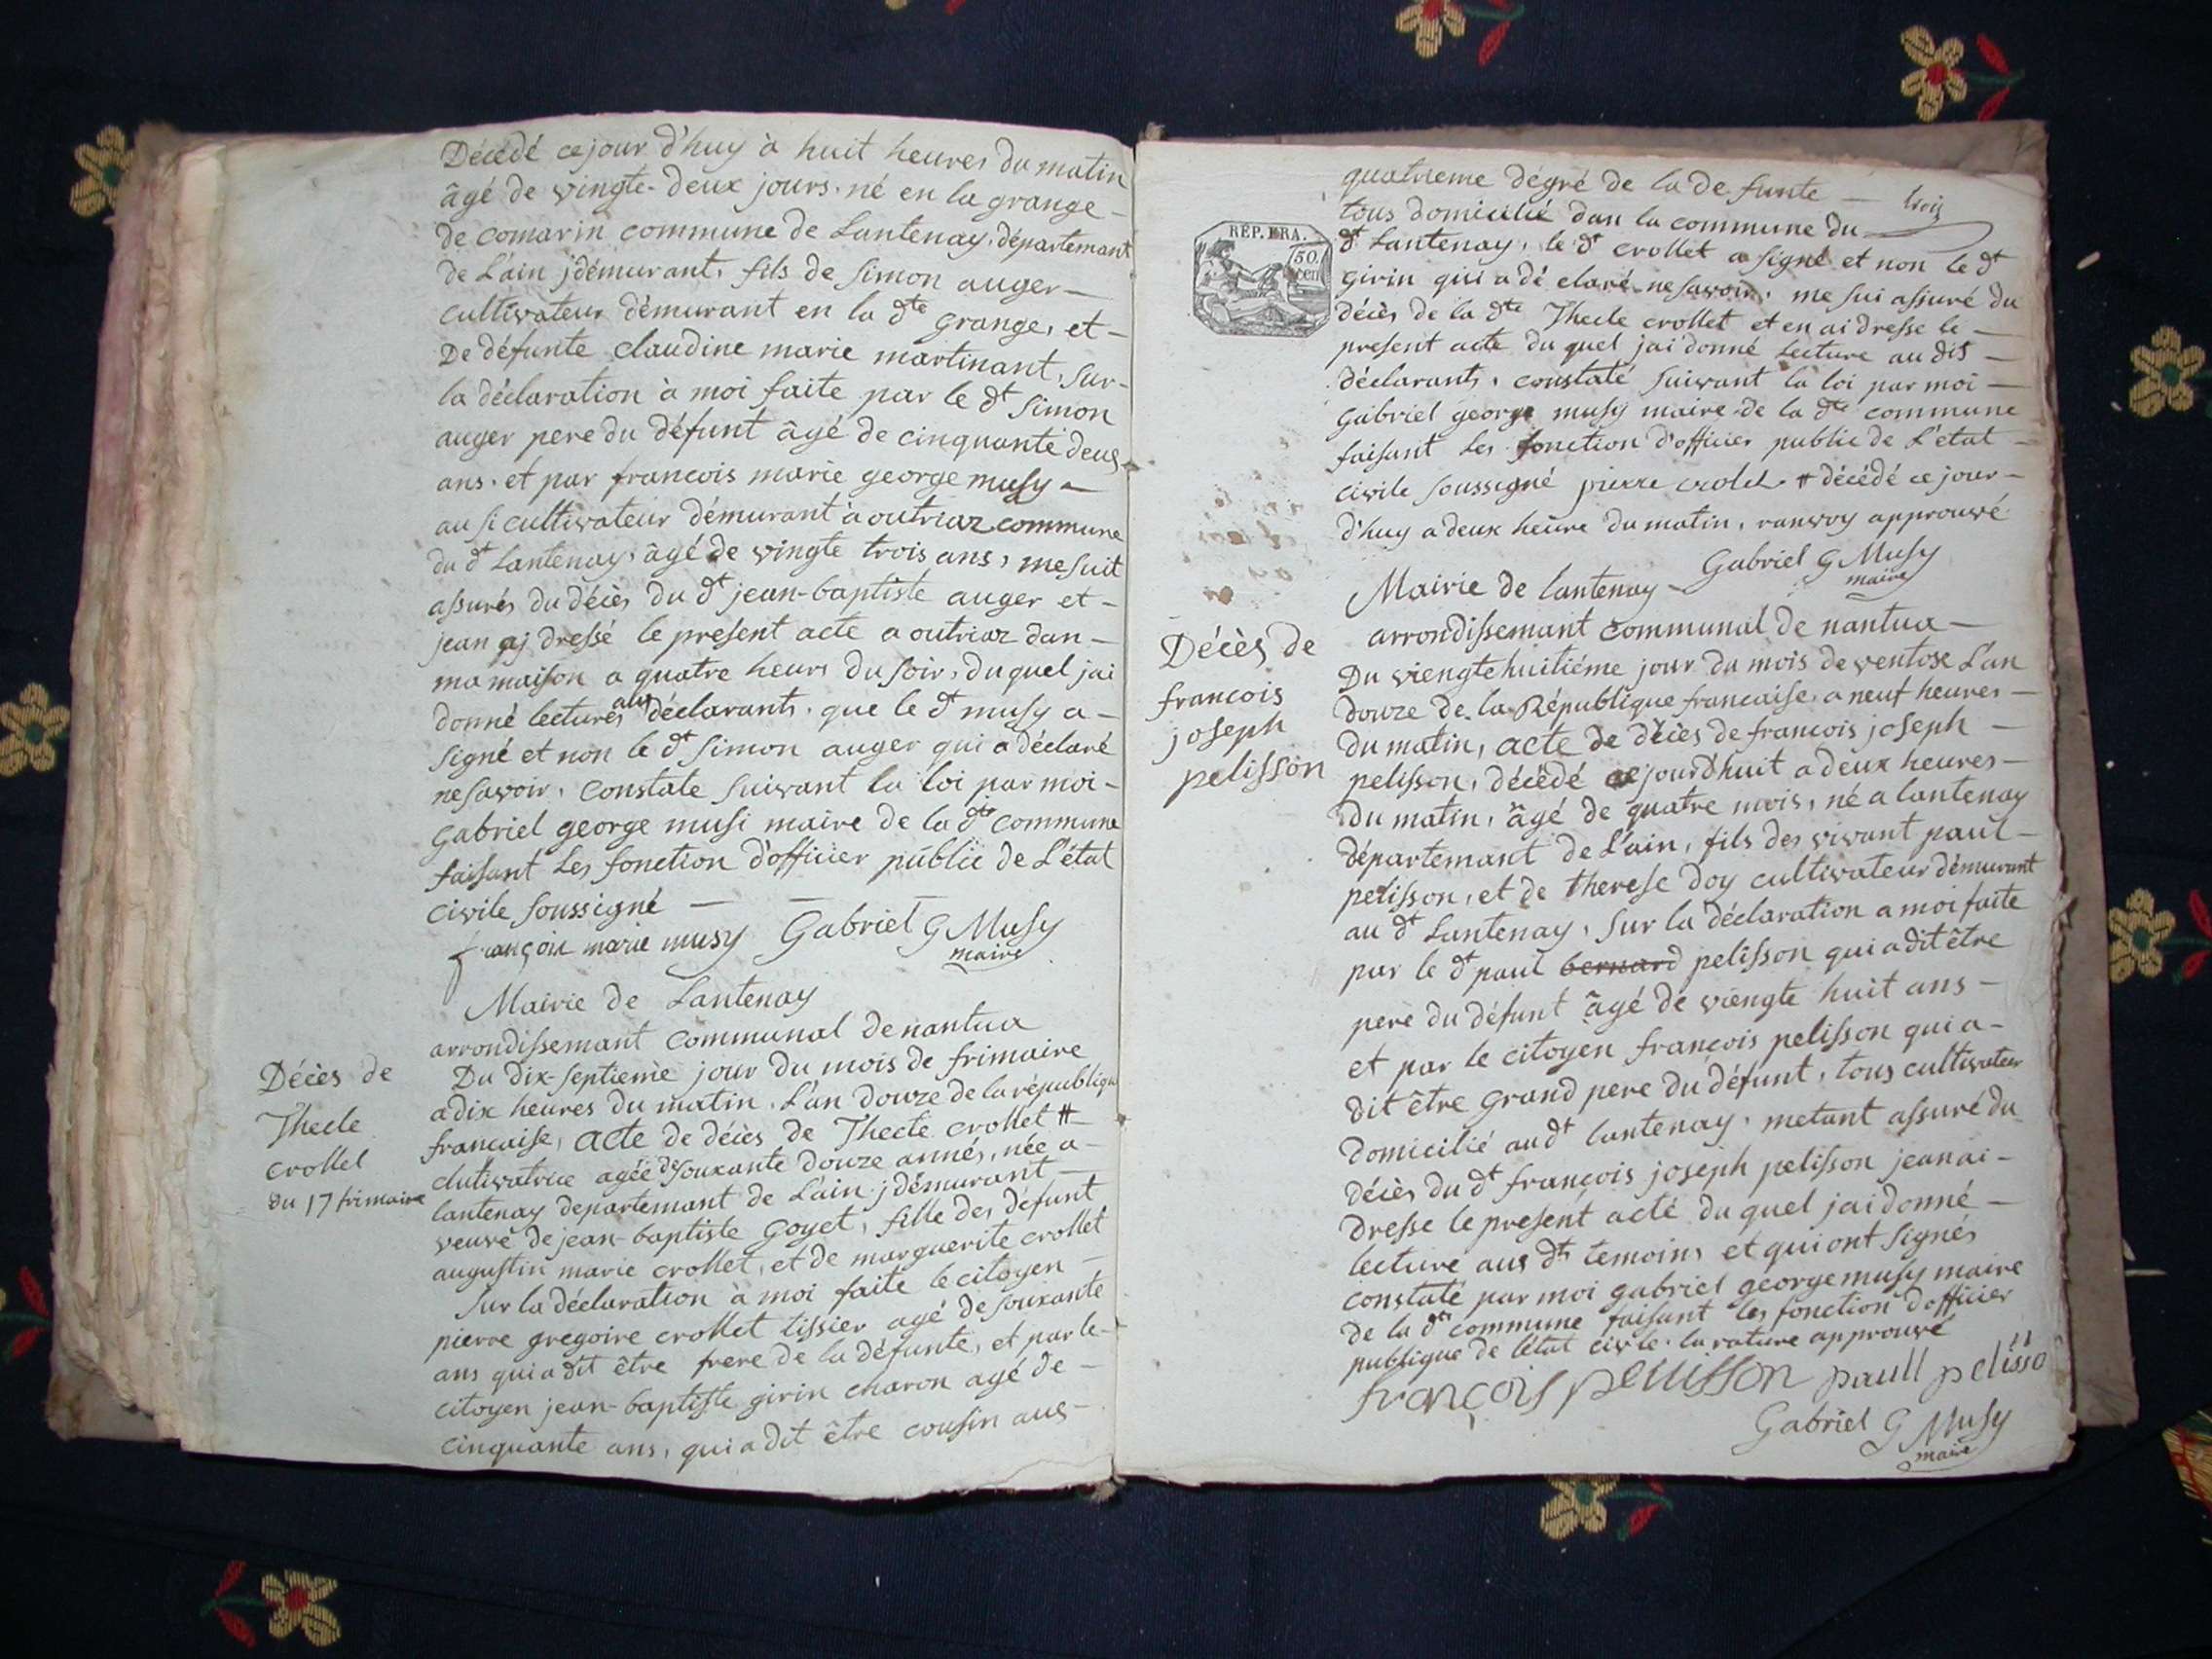 Décédé ce jour d'huy à huit heures du matin
âgé de vingte-deux jours. né en la grange-
de comarin commune de Lantenay, départemant
de L'ain j démurant, fils de simon auger-
cultivateur démurant en la dte grange, et-
De défunte claudine marie martinant, sur-
la déclaration à moi faite par le dt simon
auger pere du défunt âgé de cinquante deus
ans. et par francois marie george musy-
au si cultivateur démurant a outriaz commune
du dt Lantenay, âgé de vingte trois ans, me suit
assurés du décès du dt jean-baptiste auger et-
jean aj dressé le present acte a outriaz dan-
ma maison a quatre heurs du soir, du quel jai
donné lectures aus déclarants. que le dt musy a-
signé et non le dt simon auger qui a déclaré
ne savoir, constate suivant la loi par moi-
gabriel george musi maire de la dte commune
faisant Les fonction d'officier publïe de L'état
civile soussigné -
françois marie musy Gabriel G Musy
maire
Mairie de Lantenay
arrondissemant communal de nantua
Décès de
Thecle
crollet
du 17 frimaire
Du dix-septieme jour du mois de frimaire
a dix heures du matin. L'an douze de la république
francaise, acte de décès de Thecle crollet #
clutivatrice agée de souxante douze annés, née a-
lantenay departemant de L'ain j démurant-
veuve de jean-baptiste goyet, fille des défunt
augustin marie crollet, et de marguerite crollet
sur la déclaration à moi faite le citoyen-
pierre gregoire crollet tissier agé de souxante
ans qui a dit être frere de la défunte, et par le-
citoyen jean-baptiste girin charon agé de-
cinquante ans, qui a dit être cousin aus-
quatrieme dégré de la defunte -
tous domicilié dan la commune du
trois
REP. FRA.
50.
cen
dt Lantenay, le dt crollet a signé et non le dt
girin qui a dé claré ne savoir, me sui assuré du
décès de la dte Thecle crollet et en ai dresse le-
present acte du quel jai donné Lecture au dis-
déclarants, constaté suivant la loi par moi-
gabriel george musy maire de la dte commune
faisant Les fonction d'officier public de L'etat-
civile soussigné pierre crolet # décédé ce jour-
d'huy a deux heûre du matin, ranvoy approuvé
Gabriel G Musy
maire
Mairie de lantenay-
arrondissemant communal de nantua-
Décès de
francois
joseph
pelisson
Du viengte huitiéme jour du mois de ventose L'an
douze de la République francaise. a neuf heures-
du matin, acte de décès de francois joseph-
pelisson, décédé ce jourd'huit a deux heures-
du matin, âgé de quatre mois, né a lantenay
département de L'ain, fils des vivant paul-
pelisson, et de therese doy cultivateur démurant
au dt Lantenay, sur la déclaration a moi faite
par le dt paul bernard pelisson qui a dit être
pere du défunt âgé de viengte huit ans-
et par le citoyen françois pelisson qui a-
dit être grand pere du défunt, tous cultivateur
domicilié au dt lantenay. metant assuré du
décès du dt françois joseph pelisson jean ai-
dresse le present acté du quel jai donné-
lecture aus dts temoins et qui ont signés
constaté par moi gabriel george musy maire
de la dte commune faisant les fonction d'officier
publique de l'état civile. la rature approuvé
françois pelisson paull pelisso
Gabriel G Musy
maire